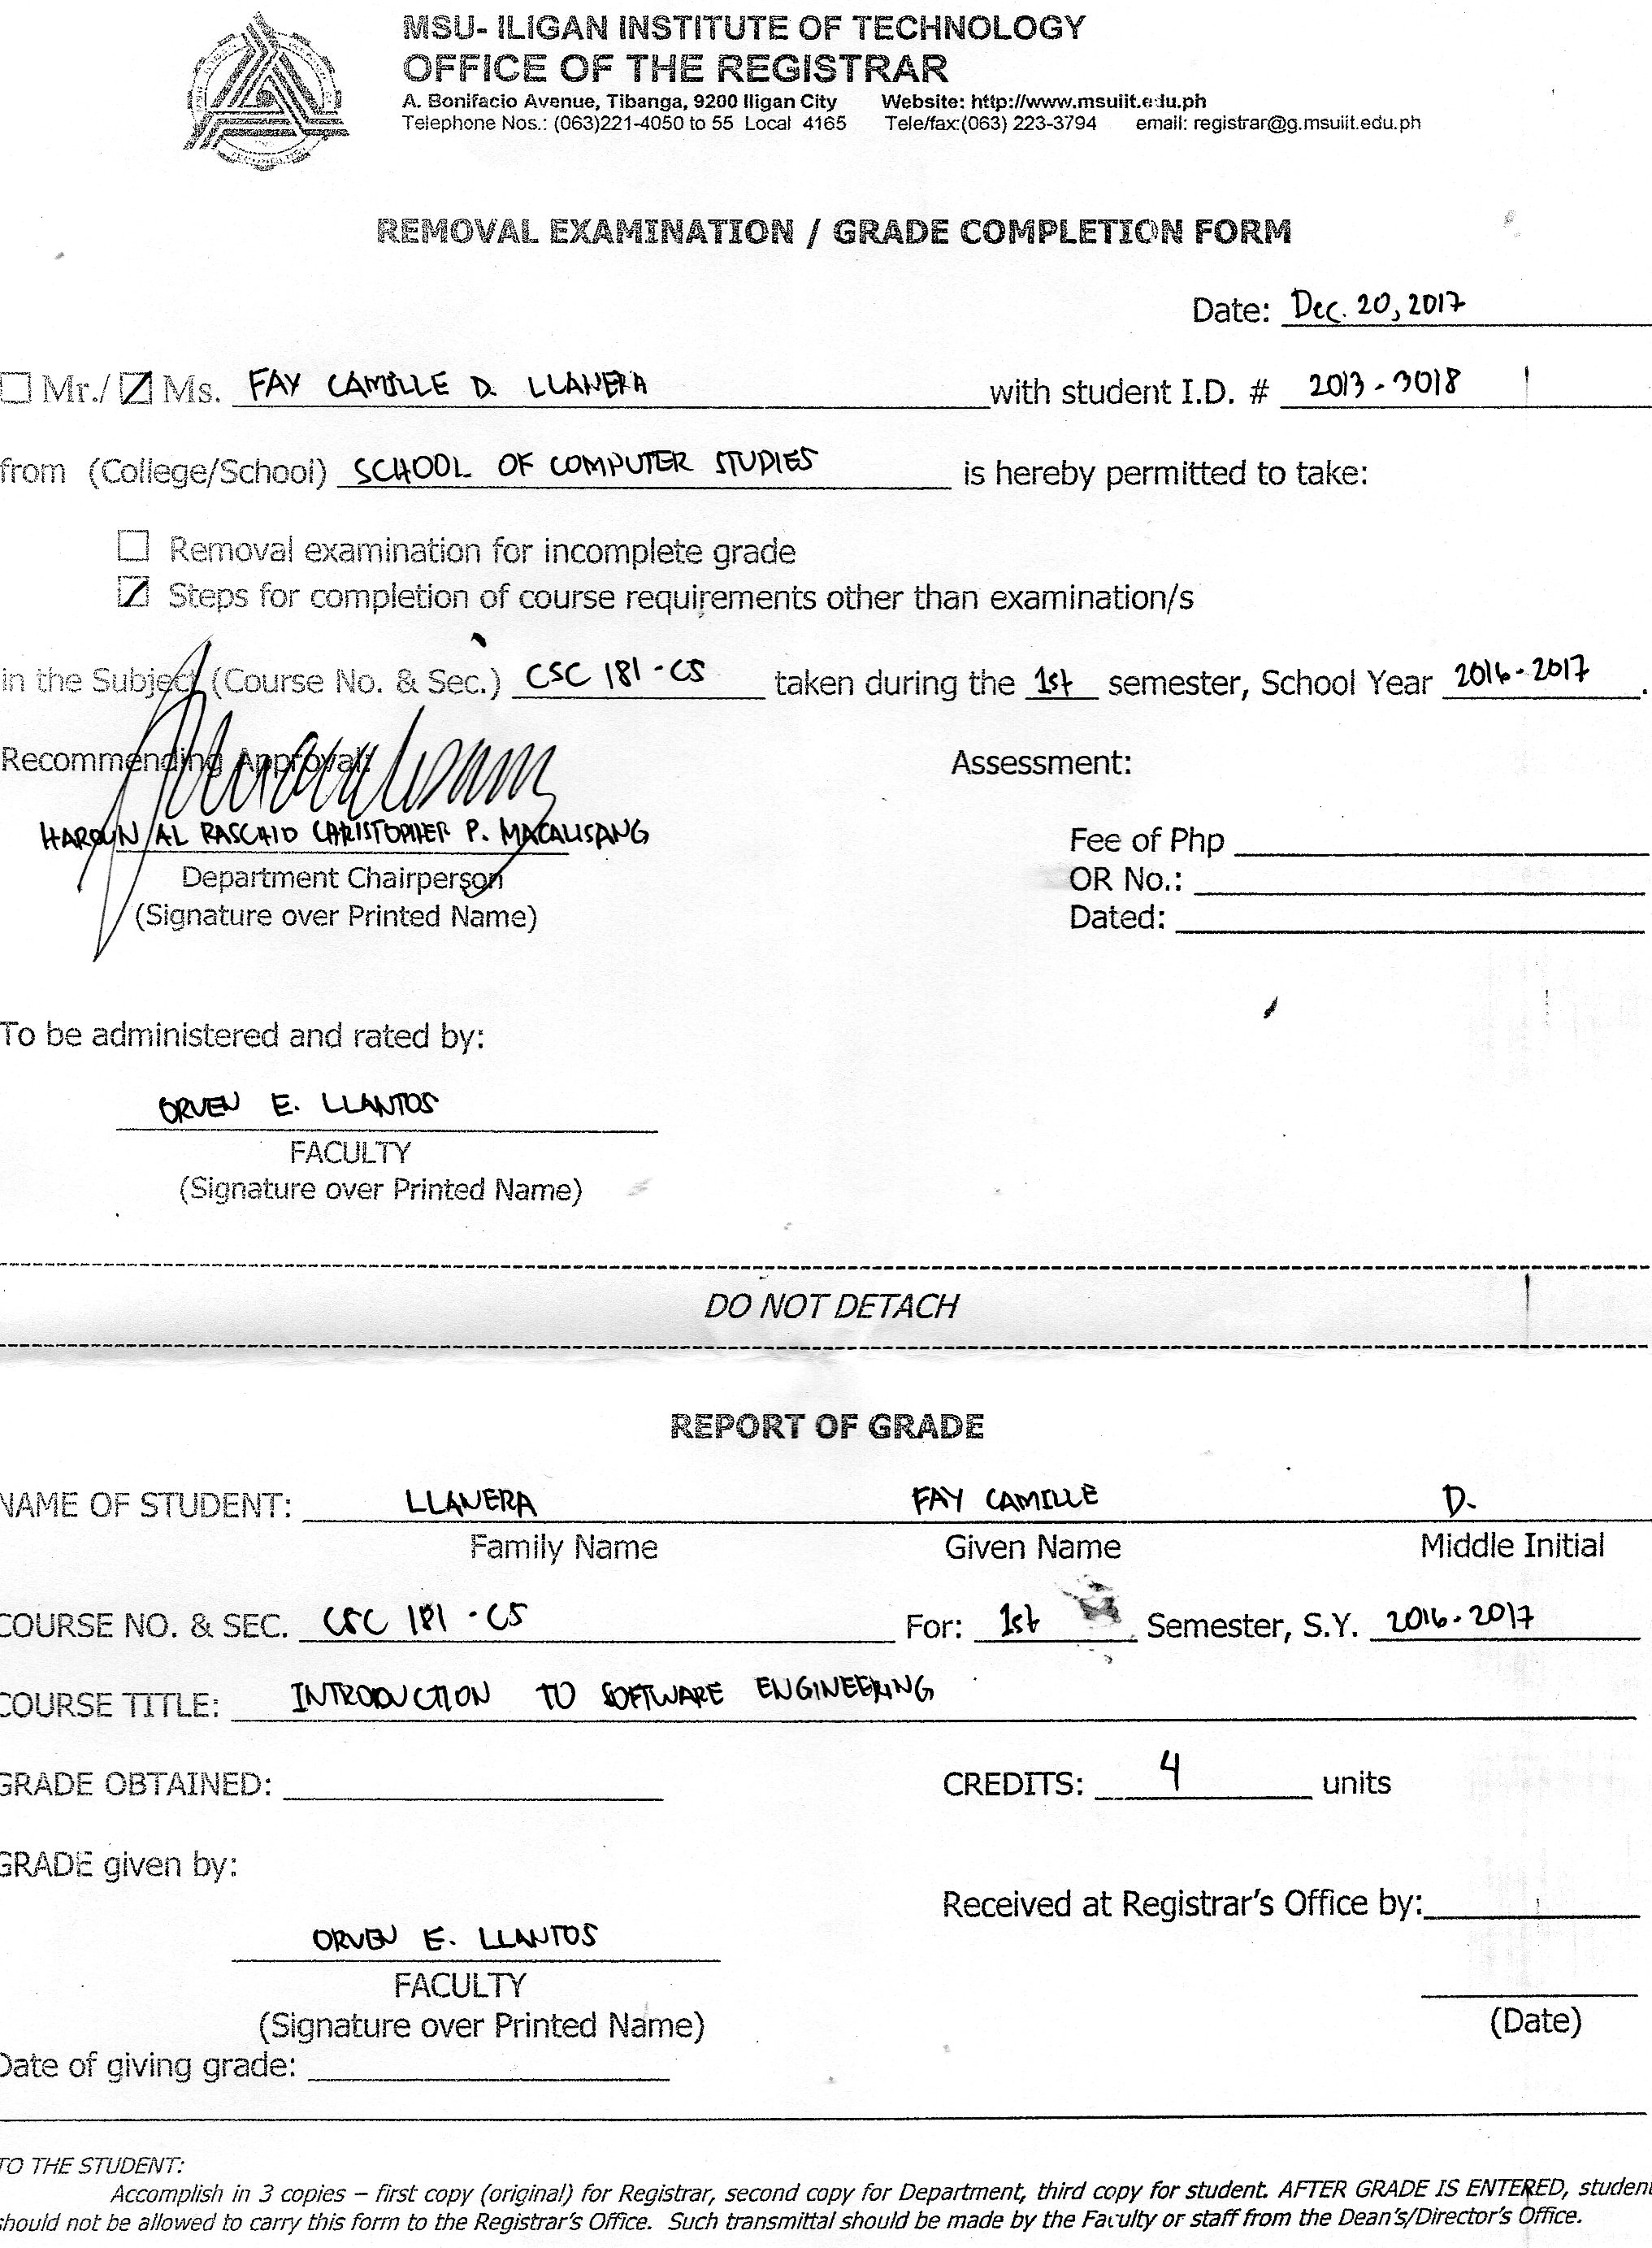 MSU- ILIGAN INSTITUTE OF TECHNOLOGY
OFFICE OF THE REGISTRAR
A. Bonifacio Avenue, Tibanga, 9200 Iligan City Website: http://www.msuiit.edu.ph
Telephone Nos.: (063)221-4050 to 55 Local 4165 Tele/fax:(063) 223-3794 email: registrar@g.msuiit.edu.ph
REMOVAL EXAMINATION / GRADE COMPLETION FORM
Date: Dec. 20, 2017
Mr./ Ms. FAY CAMILLE D. LLANERA with student I.D. # 2013-3018
from (College/School) SCHOOL OF COMPUTER STUDIES is hereby permitted to take:
Removal examination for incomplete grade
Steps for completion of course requirements other than examination/s
in the Subject (Course No. & Sec.) CSC 181 - CS taken during the 1st semester, School Year 2016-2017.
Recommending Approval: Assessment:
HAROUN AL RASCHID CHRISTOPHER P. MACALISANG Fee of Php
Department Chairperson OR No.:
(Signature over Printed Name) Dated:
To be administered and rated by:
ORVEN E. LLANTOS
FACULTY
(Signature over Printed Name)
DO NOT DETACH
REPORT OF GRADE
NAME OF STUDENT: LLANERA FAY CAMILLE D.
Family Name Given Name Middle Initial
COURSE NO. & SEC. CSC 181 - CS For: 1st Semester, S.Y. 2016-2017
COURSE TITLE: INTRODUCTION TO SOFTWARE ENGINEERING
GRADE OBTAINED: CREDITS: 4 units
GRADE given by:
Received at Registrar's Office by:
ORVEN E. LLANTOS
FACULTY
(Signature over Printed Name) (Date)
Date of giving grade:
TO THE STUDENT:
Accomplish in 3 copies – first copy (original) for Registrar, second copy for Department, third copy for student. AFTER GRADE IS ENTERED, student
should not be allowed to carry this form to the Registrar's Office. Such transmittal should be made by the Faculty or staff from the Dean's/Director's Office.